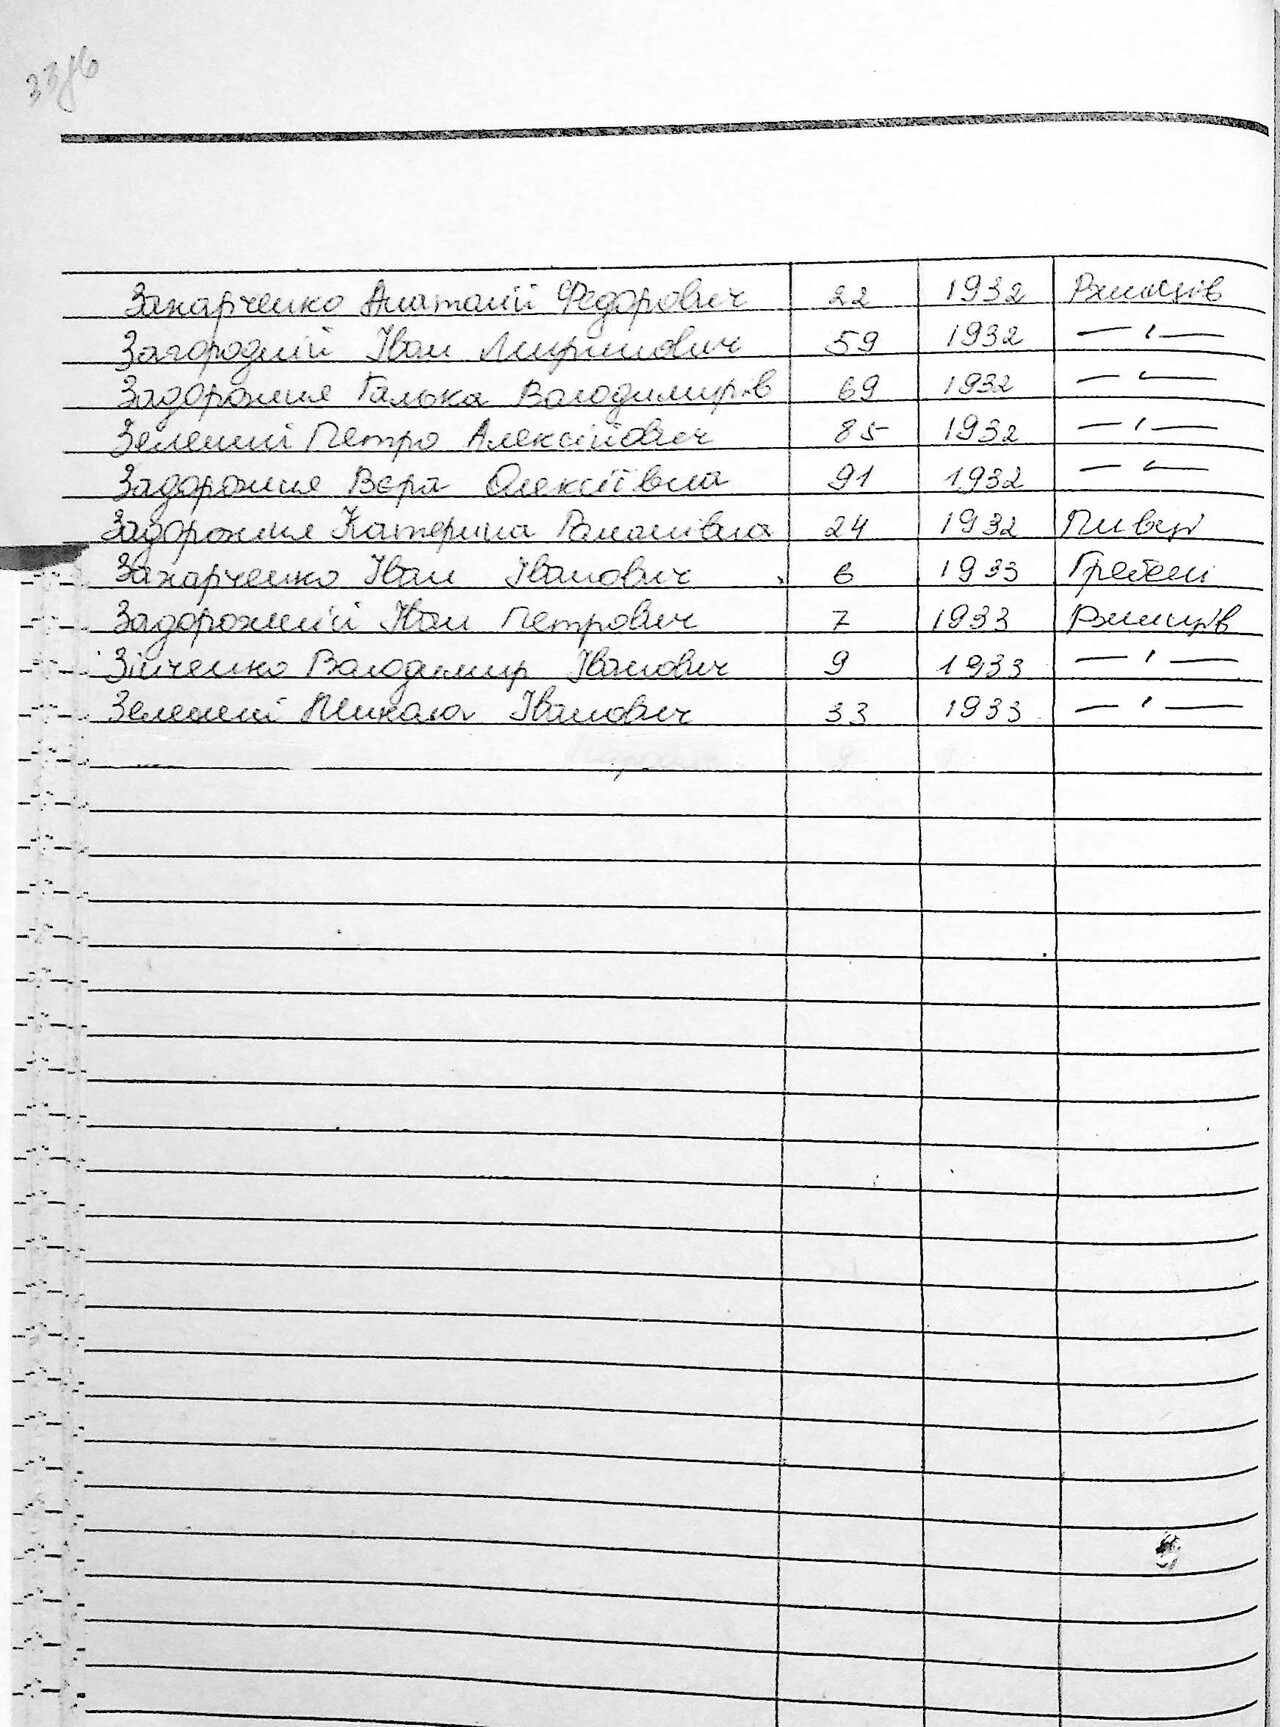 33зв
Захарченко Анатолій Федорович 22 1932 Ржищів
Загородній Іван 59 1932 — " —
Задорожня Галька Володимирів 69 1932 — " —
Зелений Петро Алексійович 85 1932 — " —
Задорожня Вєра Олексіївна 91 1932 — " —
Задорожня Катерина 24 1932 Півці
Захарченко Іван Іванович 6 1933 Гребені
Задорожній Іван Петрович 7 1933 Ржищів
Зінченко Володимир Іванович 9 1933 — " —
Зелений Микола Іванович 33 1933 — " —